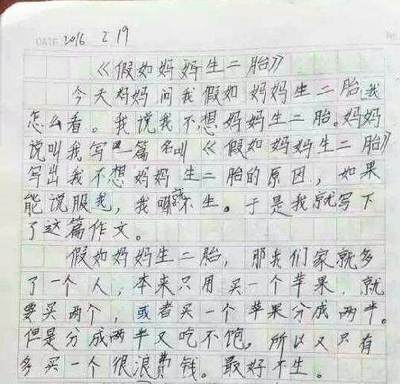 DATE 2016 2.19
《假如妈妈生二胎》
今天妈妈问我假如妈妈生二胎,我
怎么看。我说我不想妈妈生二胎。妈妈
说叫我写一篇名叫《假如妈妈生二胎》
写出我不想妈妈生二胎的原因,如果
能说服我,我就不生。于是我就写下
了这篇作文。
假如妈妈生二胎,那我们家就多
了一个人,本来只用买一个苹果,就
要买两个,或者买一个苹果分成两半。
但是分成两半又吃不饱。所以又只有
多买一个很浪费钱。最好不生。